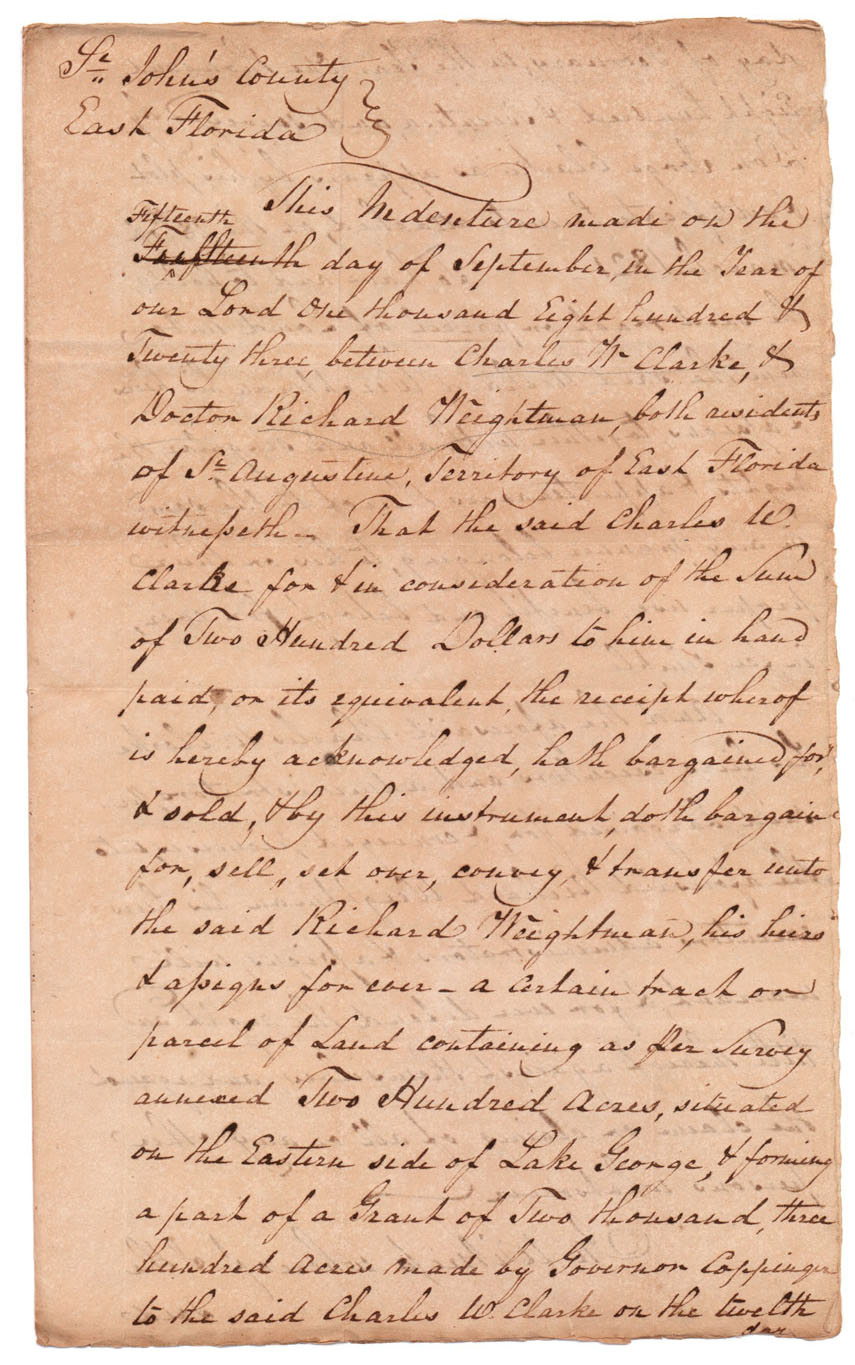 St. John's County
East Florida
This Indenture made on the
Fifteenth
day of September, in the Year of
our Lord One thousand Eight hundred &
Twenty three, between Charles W Clarke, &
Doctor Richard Weightman, both residents
of St. Augustine, Territory of East Florida
witnesseth - That the said Charles W.
Clarke for & in consideration of the Sum
of Two Hundred Dollars to him in hand
paid, or its equivalent, the receipt wherof
is hereby acknowledged, hath bargained for,
& sold, & by this instrument, doth bargain
for, sell, set over, convey, & transfer unto
the said Richard Weightman, his heirs
& assigns for ever - a certain track or
parcel of Land containing as Per Survey
annexed Two Hundred Acres, situated
on the Eastern side of Lake George, & forming
a part of a Grant of Two thousand, three
hundred Acres made by Governor Coppinger
to the said Charles W. Clarke on the twelth
day